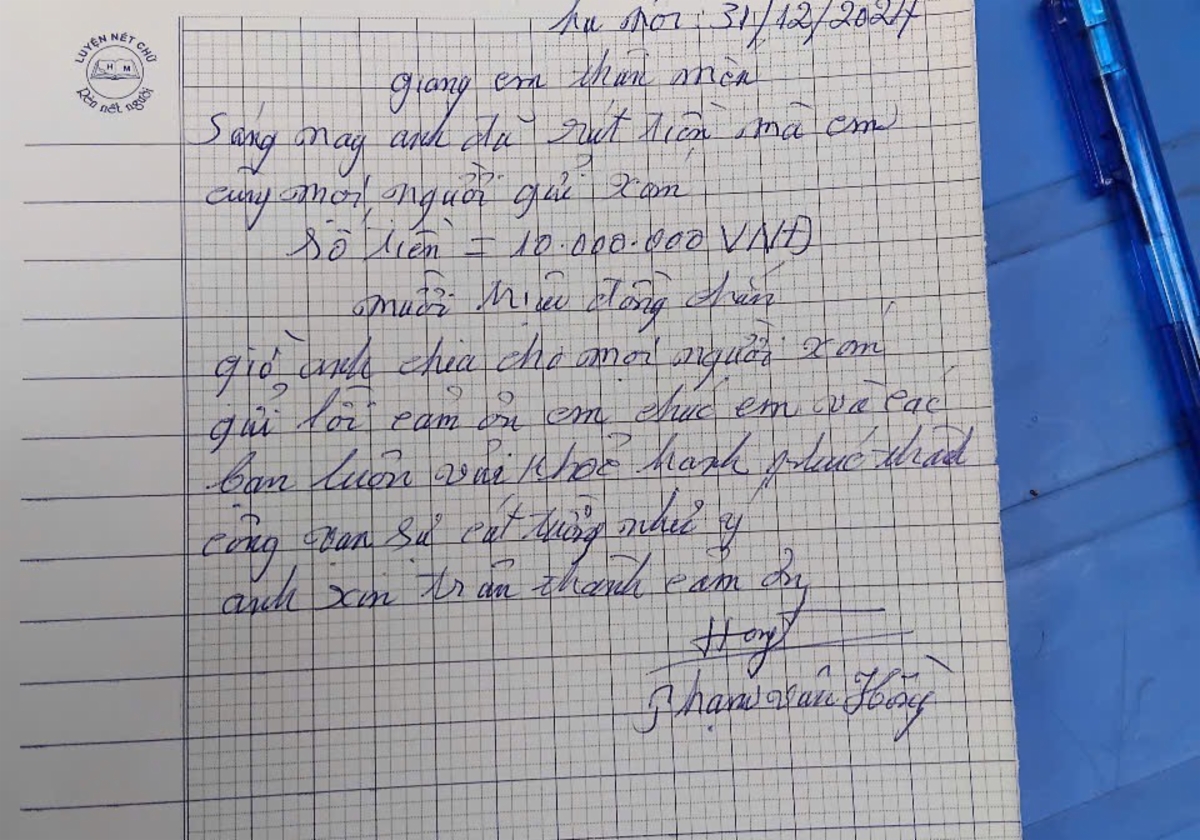 LUYỆN NẾT CHỮ
H M
Rèn nết người
31/12/2024
giang em thân mến
Sáng nay anh đã rút tiền mà em
cùng mọi người gửi xong
Số tiền = 10.000.000 VNĐ
mười triệu đồng chẵn
giờ anh chia cho mọi người xong
gửi lời cảm ơn em chúc em và các
bạn luôn vui khoẻ hạnh phúc thành
công vạn sự cát tường như ý
anh xin trân thành cảm ơn
Hong
Phạm văn Hồng